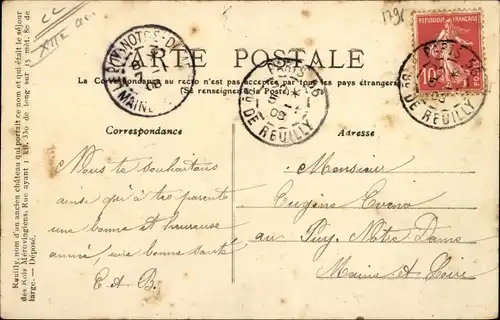 CARTE POSTALE
La Correspondance au recto n'est pas acceptée par tous les pays étrangers
(Se renseigner à la Poste)
Correspondance
Adresse
Nous te souhaitons
ainsi qu'à tes parents
une bonne et heureuse
année, une bonne santé
E. A. B.
Monsieur
Eugène
au Puy Notre Dame
Maine et Loire
Reuilly, nom d'un ancien château qui portait ce nom et qui était le séjour
des Rois Mérovingiens. Rue ayant 1 kil. 330 de long sur 15 mèt. 80 de
large. — Déposé.
REPUBLIQUE FRANÇAISE
10
PARIS
R. DE REUILLY
PARIS
DE REUILLY
08
NOTRE-DA
MAINE
08
XIIe arr.